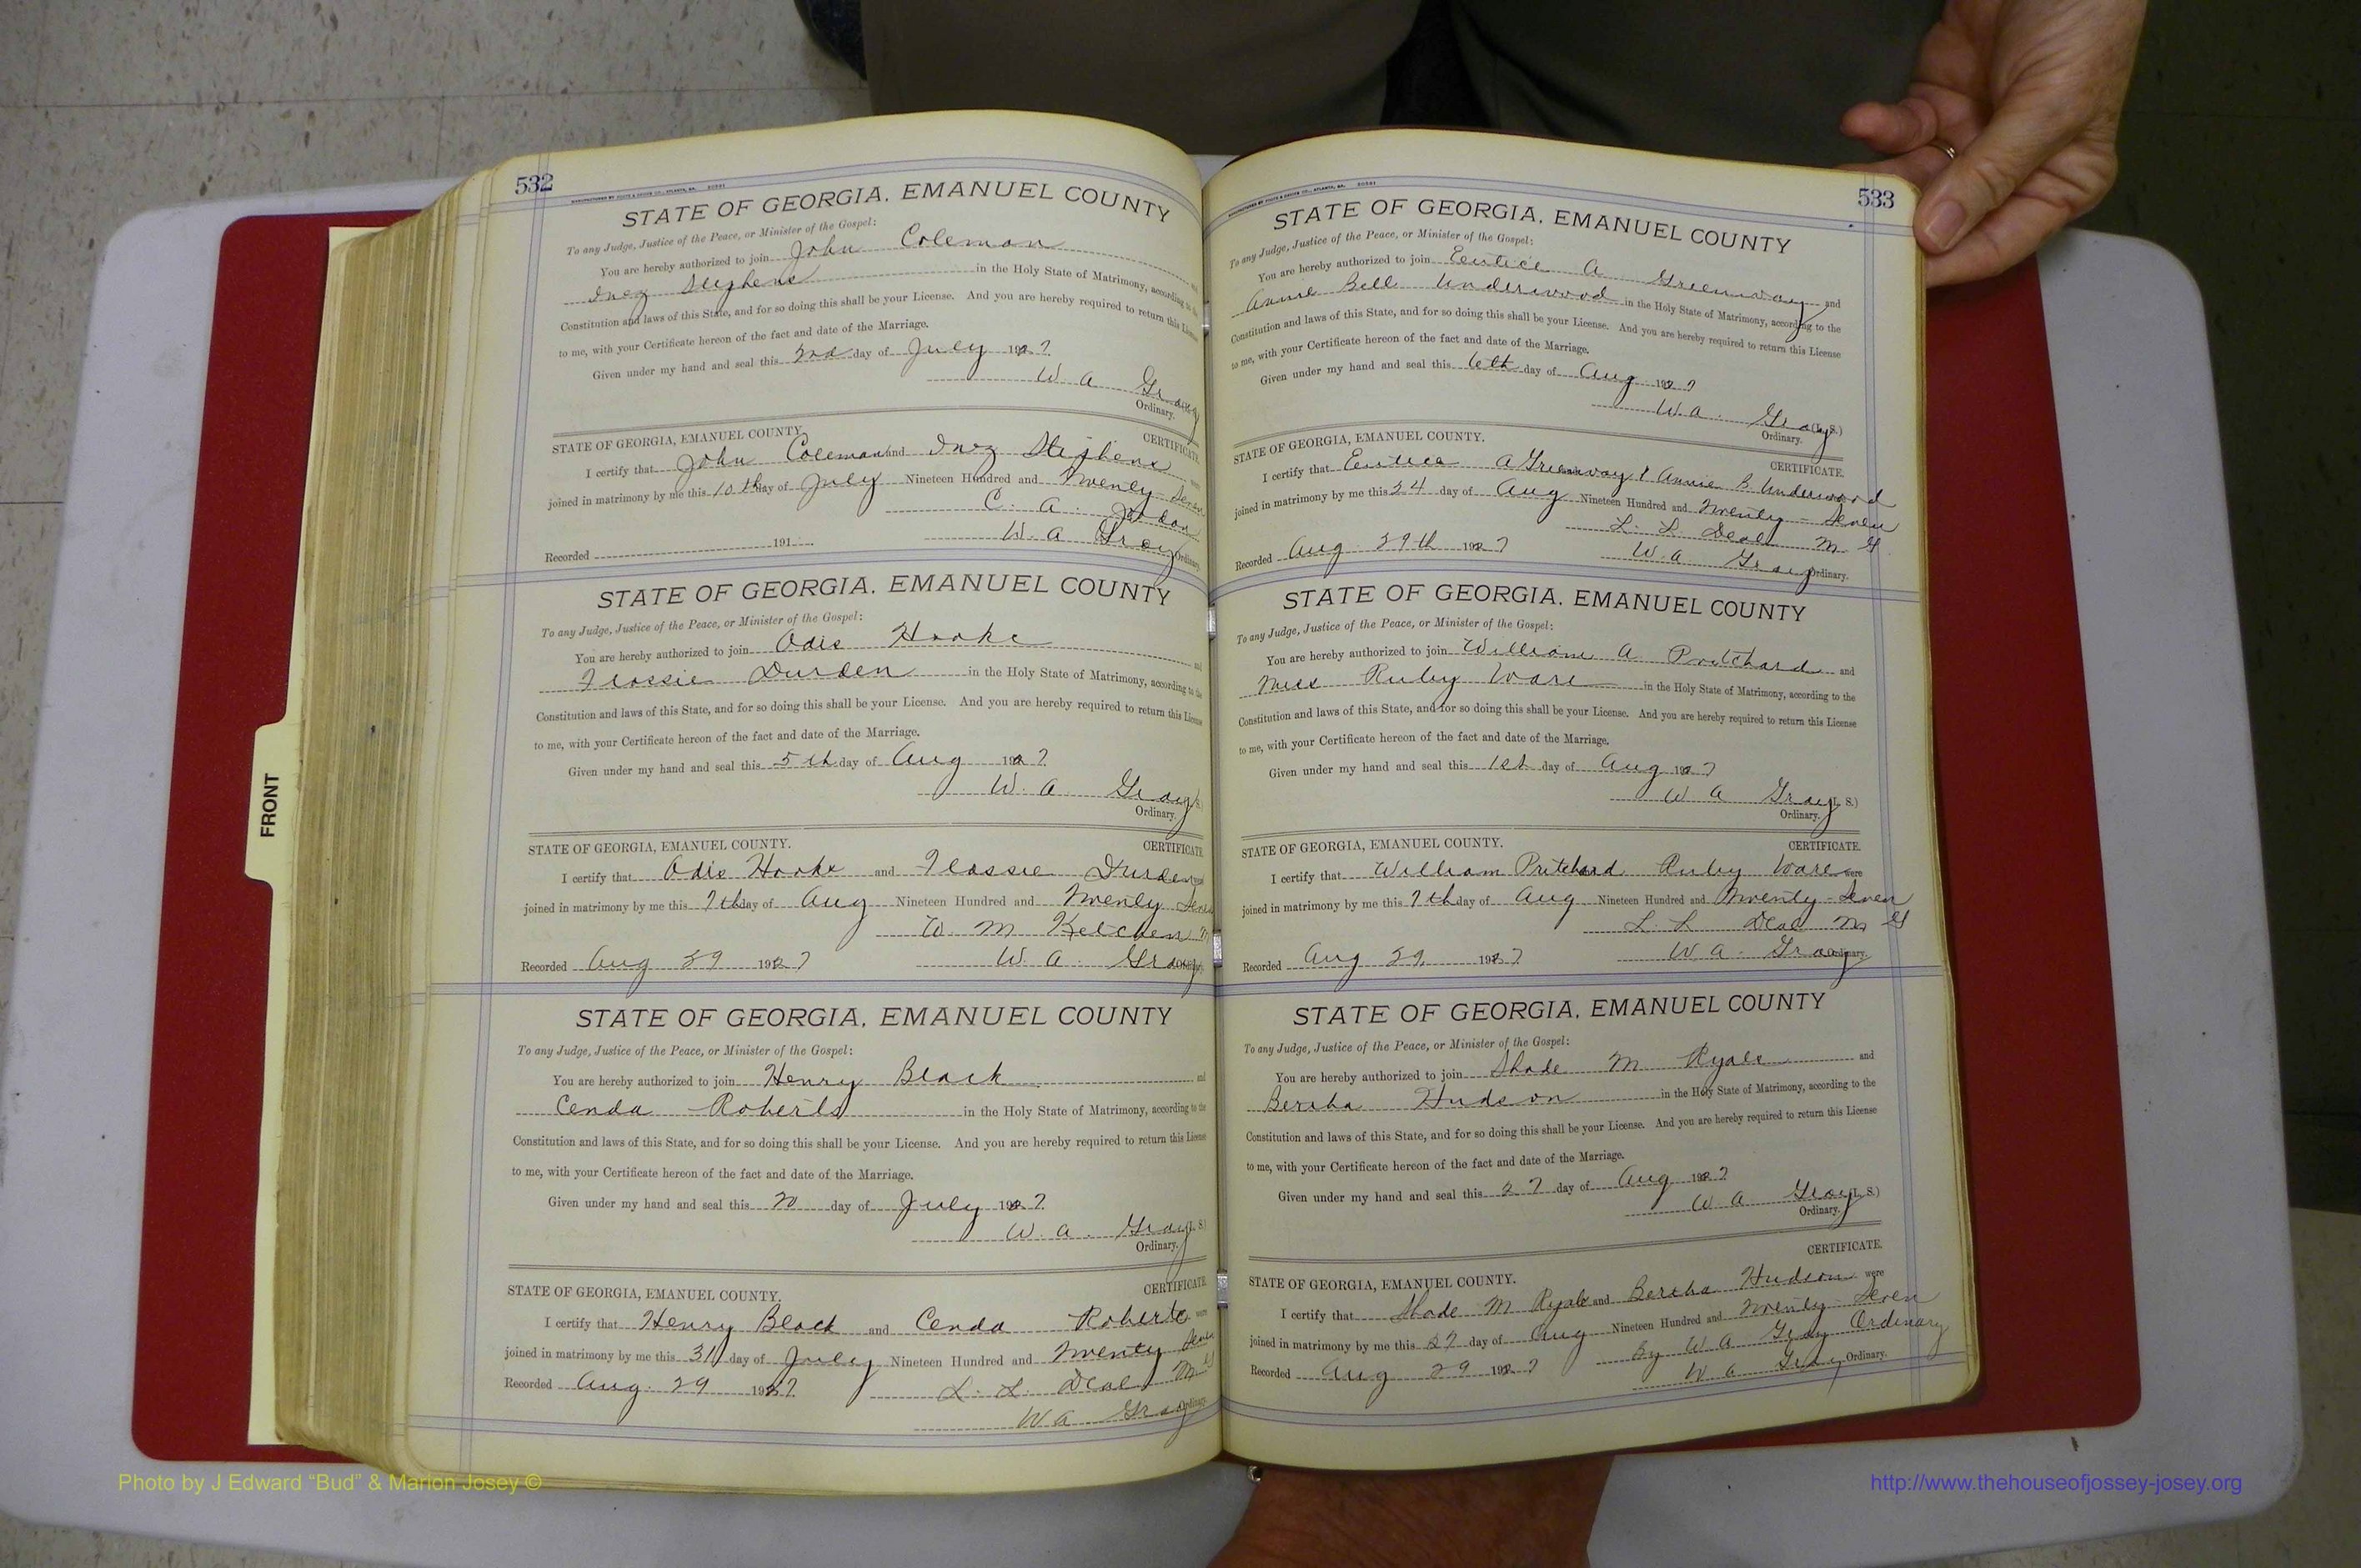 532
STATE OF GEORGIA, EMANUEL COUNTY
To any Judge, Justice of the Peace, or Minister of the Gospel:
You are hereby authorized to join John Coleman and
Inez Stephens in the Holy State of Matrimony, according to the
Constitution and laws of this State, and for so doing this shall be your License. And you are hereby required to return this License
to me, with your Certificate hereon of the fact and date of the Marriage.
Given under my hand and seal this 2nd day of July 1927
W A Gray
Ordinary.
STATE OF GEORGIA, EMANUEL COUNTY. CERTIFICATE.
I certify that John Coleman and Inez Stephens were
joined in matrimony by me this 10th day of July Nineteen Hundred and Twenty Seven
C. A. Jordan
Recorded 191 W. A Gray Ordinary.
STATE OF GEORGIA, EMANUEL COUNTY
To any Judge, Justice of the Peace, or Minister of the Gospel:
You are hereby authorized to join Odis Hooks and
Flossie Durden in the Holy State of Matrimony, according to the
Constitution and laws of this State, and for so doing this shall be your License. And you are hereby required to return this License
to me, with your Certificate hereon of the fact and date of the Marriage.
Given under my hand and seal this 5th day of Aug 1927
W. A Gray S.)
Ordinary.
STATE OF GEORGIA, EMANUEL COUNTY. CERTIFICATE
I certify that Odis Hooks and Flossie Durden were
joined in matrimony by me this 7th day of Aug Nineteen Hundred and Twenty Seven
W. M Ketchen
Recorded Aug 29 1927 W. A. Gray Ordinary.
STATE OF GEORGIA, EMANUEL COUNTY
To any Judge, Justice of the Peace, or Minister of the Gospel:
You are hereby authorized to join Henry Black and
Cenda Roberts in the Holy State of Matrimony, according to the
Constitution and laws of this State, and for so doing this shall be your License. And you are hereby required to return this License
to me, with your Certificate hereon of the fact and date of the Marriage.
Given under my hand and seal this 20 day of July 1927
W. A. Gray (L. S.)
Ordinary.
STATE OF GEORGIA, EMANUEL COUNTY. CERTIFICATE
I certify that Henry Black and Cenda Roberts were
joined in matrimony by me this 31 day of July Nineteen Hundred and Twenty Seven
Recorded Aug. 29 1927 L. L. Deal M G
W A Gray Ordinary.
533
STATE OF GEORGIA, EMANUEL COUNTY
To any Judge, Justice of the Peace, or Minister of the Gospel:
You are hereby authorized to join Eutice A Greenway and
Annie Bell Underwood in the Holy State of Matrimony, according to the
Constitution and laws of this State, and for so doing this shall be your License. And you are hereby required to return this License
to me, with your Certificate hereon of the fact and date of the Marriage.
Given under my hand and seal this 6th day of Aug 1927
W. A. Gray (L. S.)
Ordinary.
STATE OF GEORGIA, EMANUEL COUNTY. CERTIFICATE.
I certify that Eutice A Greenway & Annie B Underwood
joined in matrimony by me this 24 day of Aug Nineteen Hundred and Twenty - Seven
L. L Deal M G
Recorded Aug. 29th 1927 W. A Gray Ordinary.
STATE OF GEORGIA, EMANUEL COUNTY
To any Judge, Justice of the Peace, or Minister of the Gospel:
You are hereby authorized to join William A Pritchard and
Miss Ruby Ware in the Holy State of Matrimony, according to the
Constitution and laws of this State, and for so doing this shall be your License. And you are hereby required to return this License
to me, with your Certificate hereon of the fact and date of the Marriage.
Given under my hand and seal this 1st day of Aug 1927
W A Gray (L. S.)
Ordinary.
STATE OF GEORGIA, EMANUEL COUNTY. CERTIFICATE.
I certify that William Pritchard Ruby Ware were
joined in matrimony by me this 7th day of Aug Nineteen Hundred and Twenty - Seven
L. L Deal M G
Recorded Aug 29, 1927 W. A. Gray Ordinary.
STATE OF GEORGIA, EMANUEL COUNTY
To any Judge, Justice of the Peace, or Minister of the Gospel:
You are hereby authorized to join Shade M Ryals and
Bertha Hudson in the Holy State of Matrimony, according to the
Constitution and laws of this State, and for so doing this shall be your License. And you are hereby required to return this License
to me, with your Certificate hereon of the fact and date of the Marriage.
Given under my hand and seal this 27 day of Aug 1927
W A Gray (L. S.)
Ordinary.
CERTIFICATE.
STATE OF GEORGIA, EMANUEL COUNTY.
I certify that Shade M Ryals and Bertha Hudson were
joined in matrimony by me this 27 day of Aug Nineteen Hundred and Twenty - Seven
By W A Gray Ordinary
Recorded Aug 29 1927 W A Gray Ordinary.
FRONT
Photo by J Edward “Bud” & Marion Josey ©
http://www.thehouseofjossey-josey.org